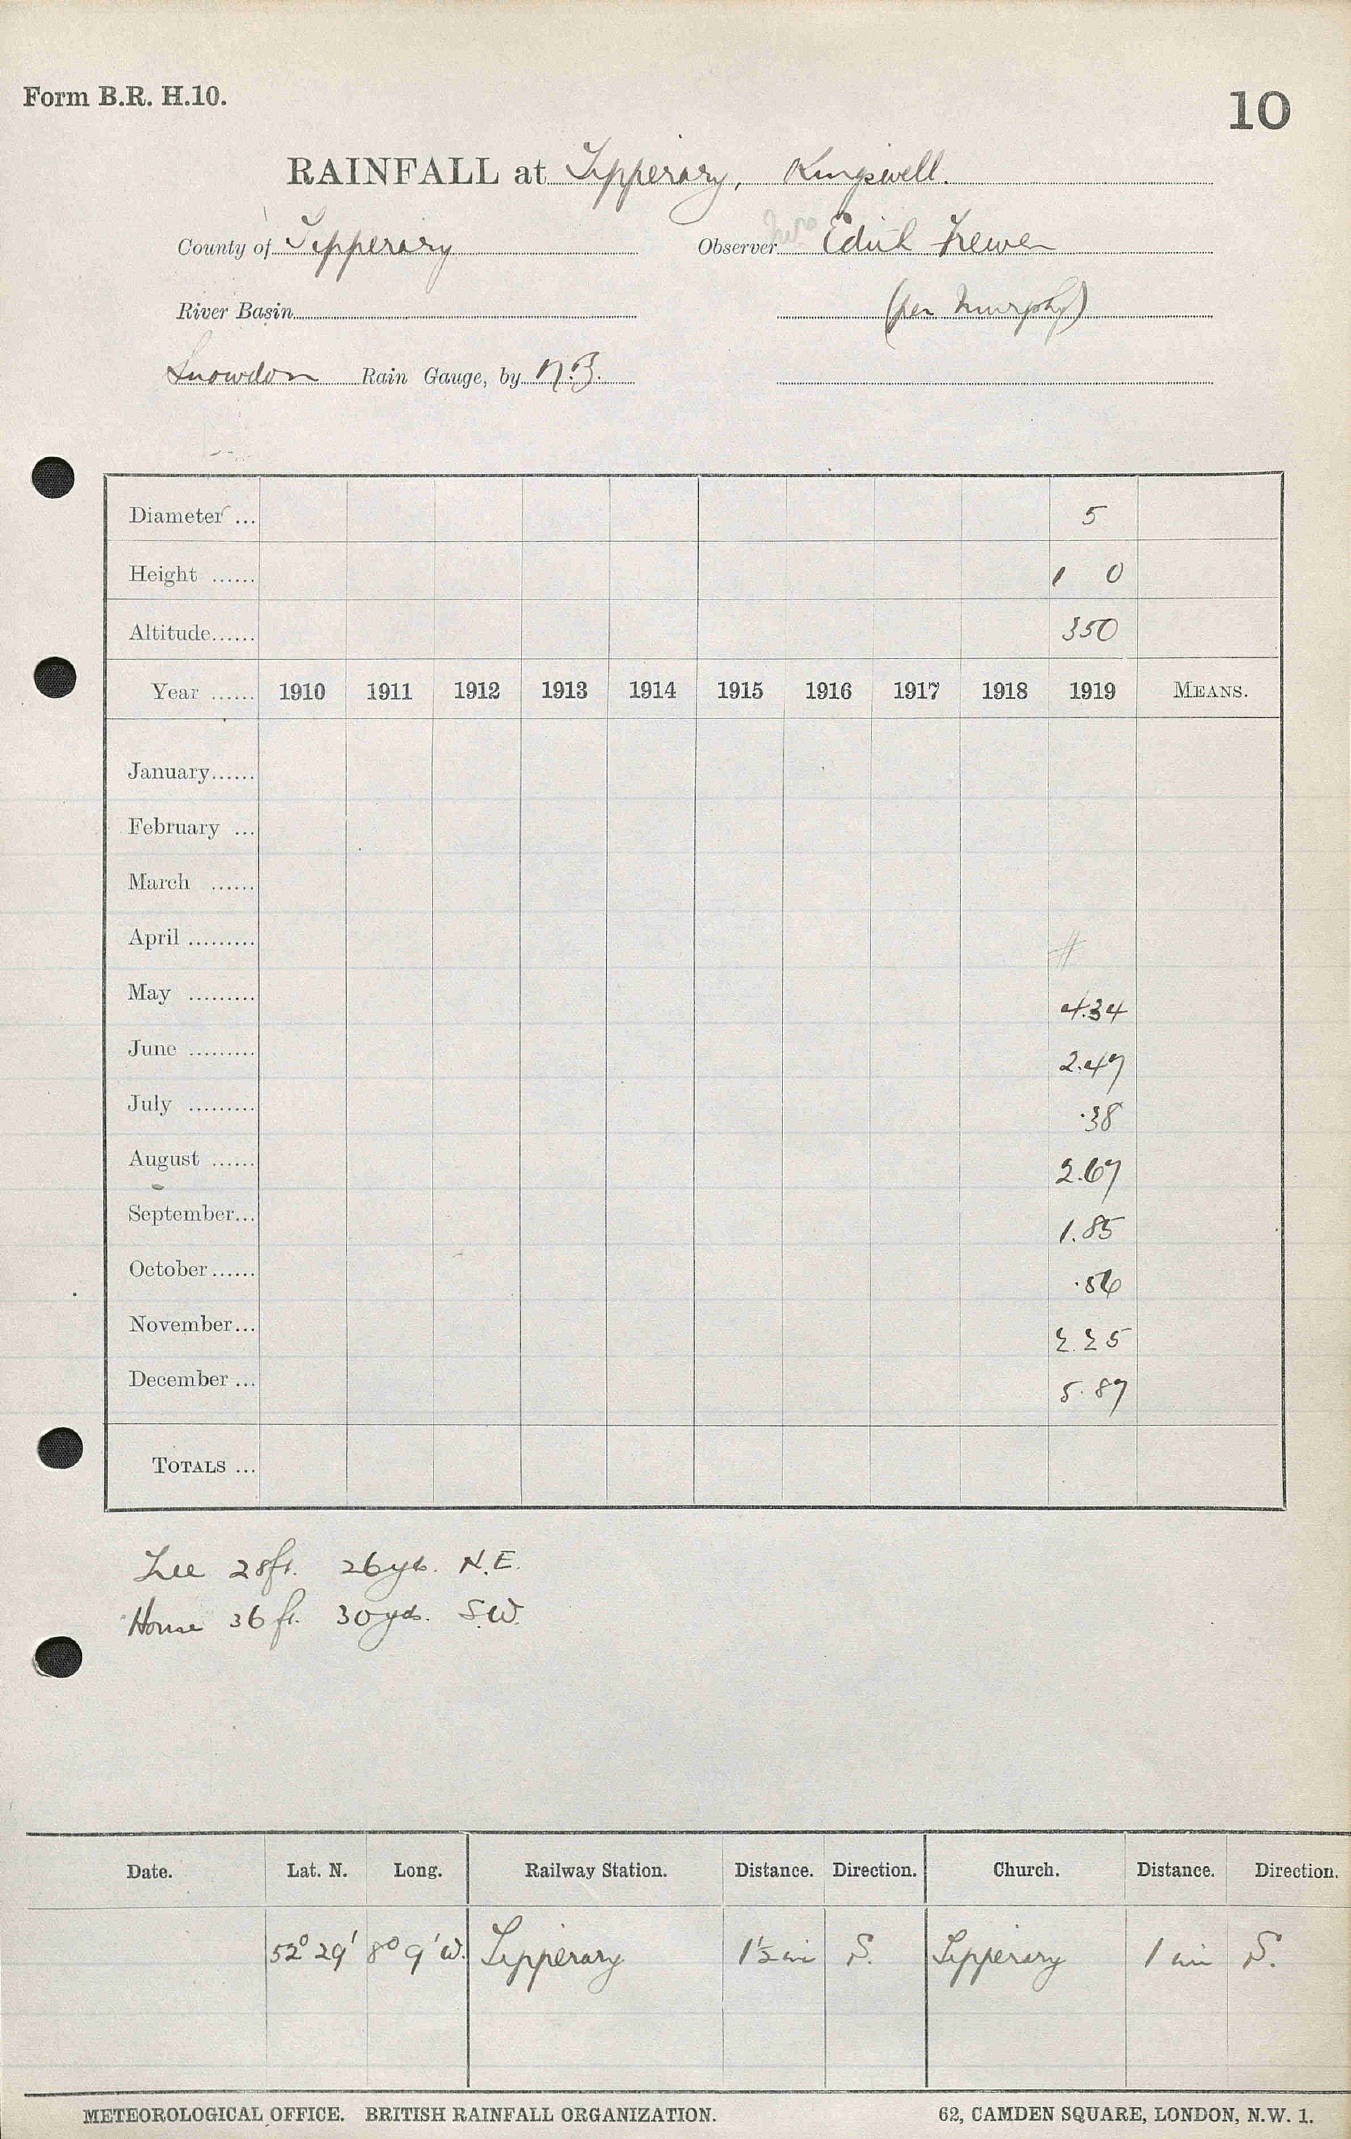 Form B.R. H.10.
10
RAINFALL at Tipperary, Kingswell.
County of Tipperary Observer Mrs Edith Frewen
River Basin (per Murphy)
Snowdon Rain Gauge, by N.B.
Diameter ... 5
Height ...... 1 0
Altitude...... 350
Year ...... 1910 1911 1912 1913 1914 1915 1916 1917 1918 1919 MEANS.
January......
February ...
March ......
April .........
May ......... 4.34
June ......... 2.47
July ......... .38
August ...... 2.67
September... 1.85
October...... .56
November... 2.25
December ... 5.87
TOTALS ...
Tree 28ft. 26yds. N.E.
House 36 ft. 30yds. S.W.
Date. Lat. N. Long. Railway Station. Distance. Direction. Church. Distance. Direction.
52° 29' 8° 9' W. Tipperary 1½ mi S. Tipperary 1 mi S.
METEOROLOGICAL OFFICE. BRITISH RAINFALL ORGANIZATION. 62, CAMDEN SQUARE, LONDON, N.W. 1.